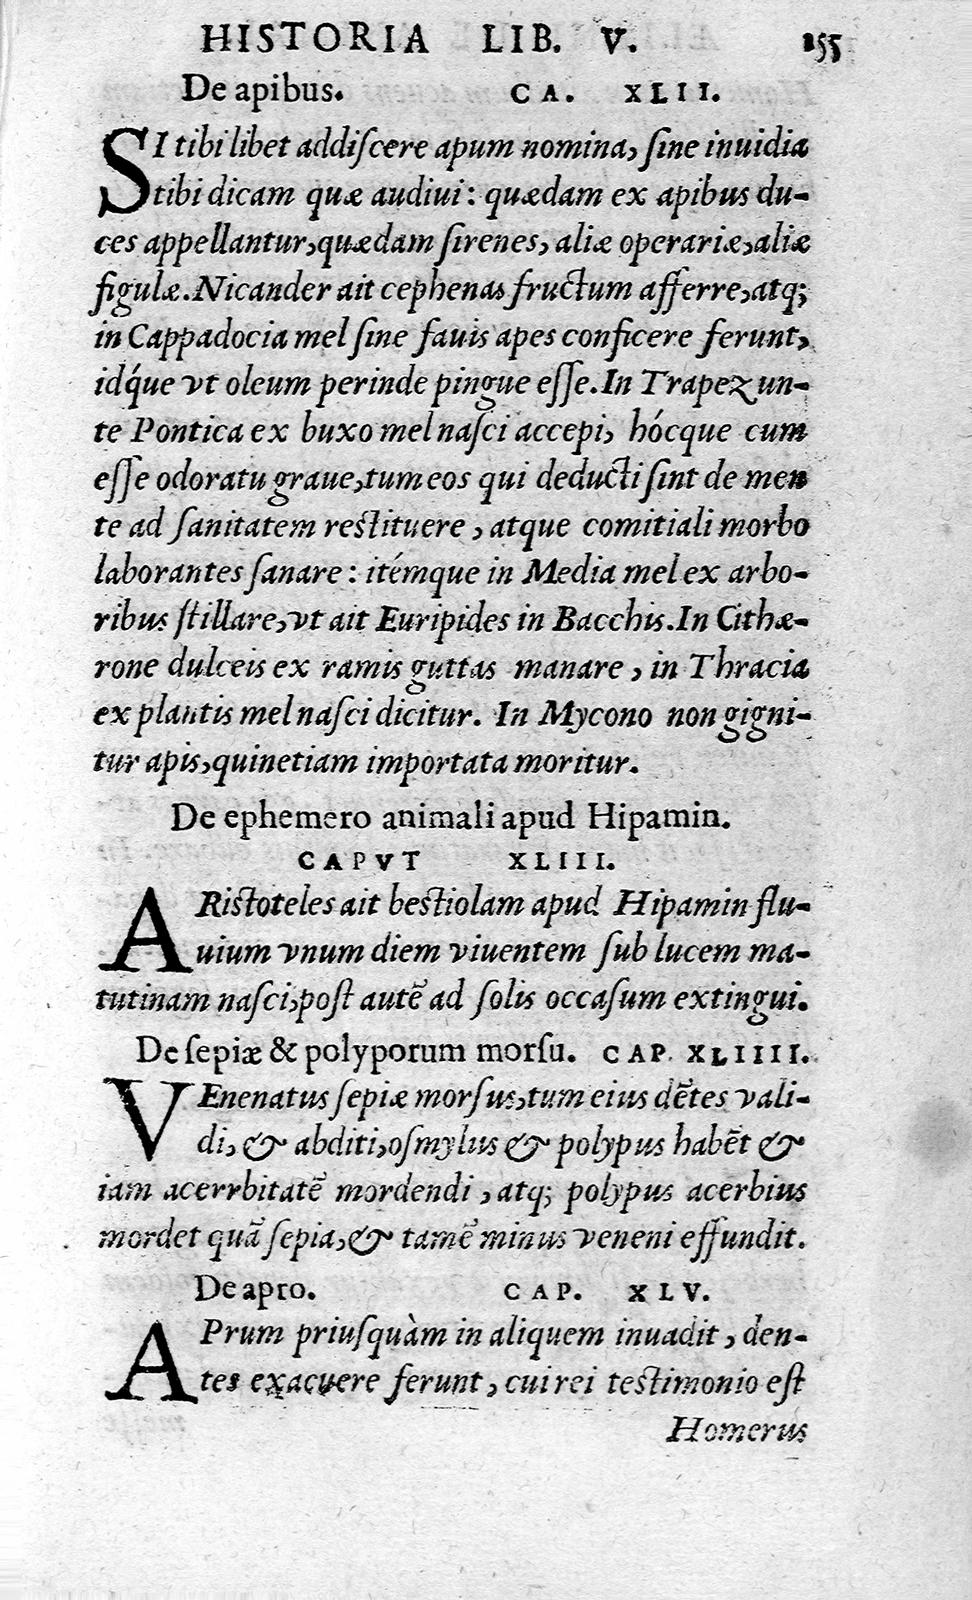 HISTORIA LIB. V. 255
De apibus. CA. XLII.
SI tibi libet addiſcere apum nomina, ſine inuidia
tibi dicam quæ audiui: quædam ex apibus du-
ces appellantur, quædam ſirenes, aliæ operariæ, aliæ
figulæ. Nicander ait cephenas fructum afferre, atq;
in Cappadocia mel ſine fauis apes conficere ferunt,
idq́ue vt oleum perinde pingue eſſe. In Trapezun-
te Pontica ex buxo mel naſci accepi, hócque cum
eſſe odoratu graue, tum eos qui deducti ſint de men
te ad ſanitatem reſtituere, atque comitiali morbo
laborantes ſanare: itémque in Media mel ex arbo-
ribus ſtillare, vt ait Euripides in Bacchis. In Cithæ-
rone dulceis ex ramis guttas manare, in Thracia
ex plantis mel naſci dicitur. In Mycono non gigni-
tur apis, quinetiam importata moritur.
De ephemero animali apud Hipamin.
CAPVT XLIII.
ARiſtoteles ait beſtiolam apud Hipamin flu-
uium vnum diem viuentem ſub lucem ma-
tutinam naſci, poſt autē ad ſolis occaſum extingui.
De ſepiæ & polyporum morſu. CAP. XLIIII.
VEnenatus ſepiæ morſus, tum eius dētes vali-
di, & abditi, oſmylus & polypus habēt &
iam acerrbitatē mordendi, atq; polypus acerbius
mordet quā ſepia, & tamē minus veneni effundit.
De apro. CAP. XLV.
APrum priuſquàm in aliquem inuadit, den-
tes exacuere ferunt, cui rei teſtimonio eſt
Homerus